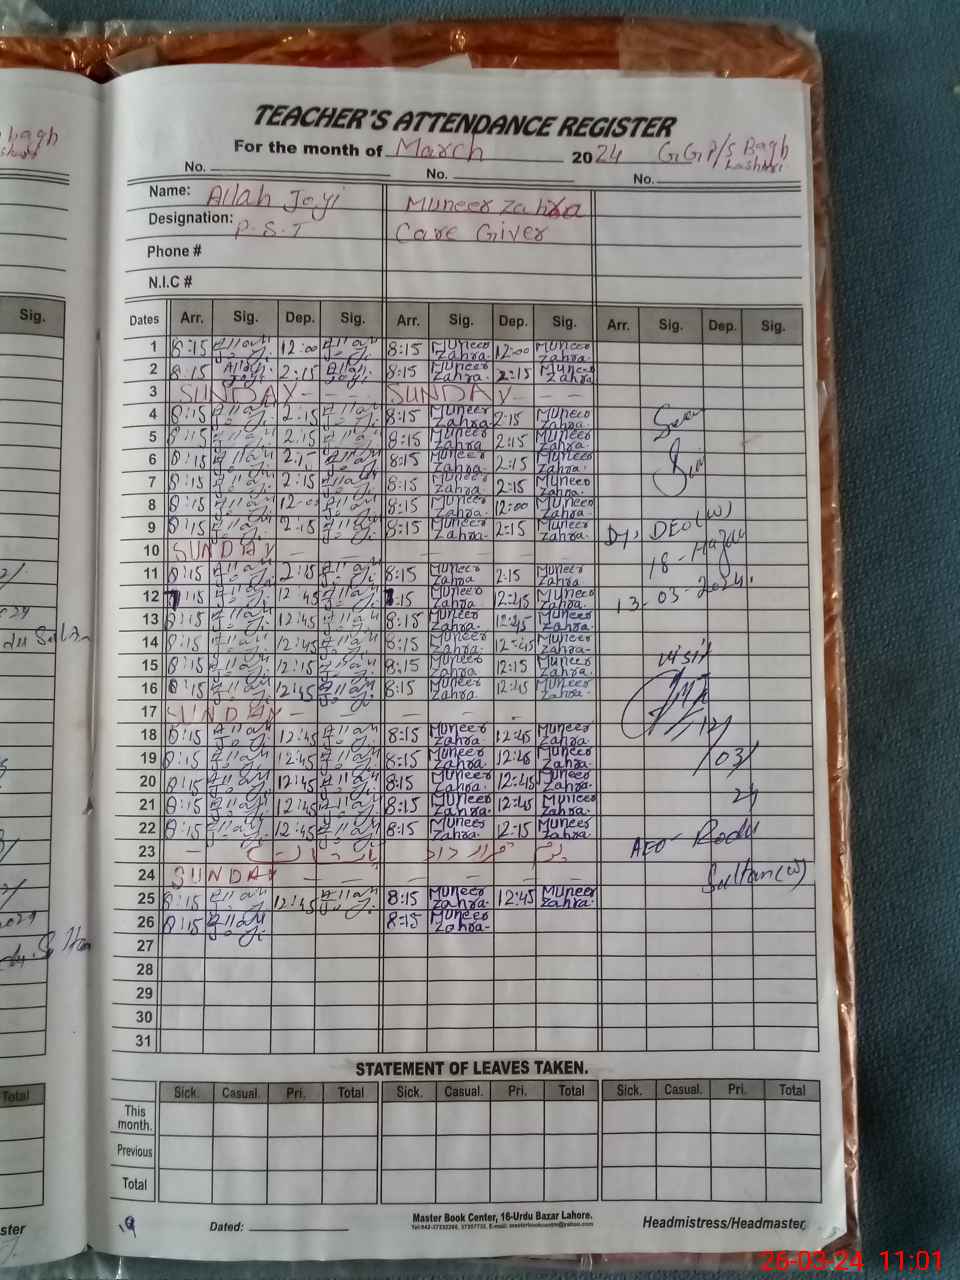 TEACHER'S ATTENDANCE REGISTER
For the month of March 2024 G.G.P/S Bagh
No. No. No.
Name: Allah Joyi Muneer Zahra
Designation: P.S.T Care Giver
Phone #
N.I.C #
Dates Arr. Sig. Dep. Sig. Arr. Sig. Dep. Sig. Arr. Sig. Dep. Sig.
1 8:15 Allah Joyi 12:00 Allah Joyi 8:15 Muneer Zahra 12:00 Muneer Zahra
2 8:15 Allah Joyi 2:15 Allah Joyi 8:15 Muneer Zahra 2:15 Muneer Zahra
3 SUNDAY - - SUNDAY - -
4 8:15 Allah Joyi 2:15 Allah Joyi 8:15 Muneer Zahra 2:15 Muneer Zahra
5 8:15 Allah Joyi 2:15 Allah Joyi 8:15 Muneer Zahra 2:15 Muneer Zahra
6 8:15 Allah Joyi 2:15 Allah Joyi 8:15 Muneer Zahra 2:15 Muneer Zahra
7 8:15 Allah Joyi 2:15 Allah Joyi 8:15 Muneer Zahra 2:15 Muneer Zahra
8 8:15 Allah Joyi 12:00 Allah Joyi 8:15 Muneer Zahra 12:00 Muneer Zahra
9 8:15 Allah Joyi 2:15 Allah Joyi 8:15 Muneer Zahra 2:15 Muneer Zahra Dy. DEO (W)
10 SUNDAY - - - - - - 18-Hazari
11 8:15 Allah Joyi 2:15 Allah Joyi 8:15 Muneer Zahra 2:15 Muneer Zahra 13-03-2024.
12 :15 Allah Joyi 12:45 Allah Joyi :15 Muneer Zahra 12:45 Muneer Zahra
13 8:15 Allah Joyi 12:45 Allah Joyi 8:15 Muneer Zahra 12:45 Muneer Zahra
14 8:15 Allah Joyi 12:45 Allah Joyi 8:15 Muneer Zahra 12:45 Muneer Zahra visit
15 8:15 Allah Joyi 12:15 Allah Joyi 8:15 Muneer Zahra 12:15 Muneer Zahra
16 8:15 Allah Joyi 12:45 Allah Joyi 8:15 Muneer Zahra 12:45 Muneer Zahra
17 SUNDAY - - - - -
18 8:15 Allah Joyi 12:45 Allah Joyi 8:15 Muneer Zahra 12:45 Muneer Zahra 12/
19 8:15 Allah Joyi 12:45 Allah Joyi 8:15 Muneer Zahra 12:45 Muneer Zahra /03/
20 8:15 Allah Joyi 12:45 Allah Joyi 8:15 Muneer Zahra 12:45 Muneer Zahra 24
21 8:15 Allah Joyi 12:45 Allah Joyi 8:15 Muneer Zahra 12:45 Muneer Zahra
22 8:15 Allah Joyi 12:45 Allah Joyi 8:15 Muneer Zahra 12:15 Muneer Zahra AEO- Rodu
23 - یوم قرارداد پاکستان
24 SUNDAY - - - - - - Sultan (W)
25 8:15 Allah Joyi 12:45 Allah Joyi 8:15 Muneer Zahra 12:45 Muneer Zahra
26 8:15 Allah Joyi 8:15 Muneer Zahra
27
28
29
30
31
STATEMENT OF LEAVES TAKEN.
Sick. Casual. Pri. Total Sick. Casual. Pri. Total Sick. Casual. Pri. Total
This month.
Previous
Total
Dated:
Master Book Center, 16-Urdu Bazar Lahore.
Headmistress/Headmaster
26-03-24 11:01